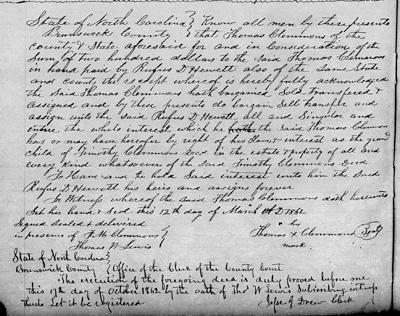 State of North Carolina } Know all men by these presents
Brunswick County } that Thomas Clemmons of the
county & State aforesaid for and in Consideration of the
Sum of two hundred dollars to the Said Thomas Clemmons
in hand paid by Rufus D. Hewett also of the Same State
and county the receipt whereof is hereby fully acknowledged
the Said Thomas Clemmons hath bargained Sold transferred &
Assigned and by these presents do bargain Sell transfer and
assign unto the Said Rufus D. Hewett all and Singular and
entire, the whole interest which he hath the Said Thomas Clemmons
has or may have hereafter by right of his Claim & interest as the grand
child of Timothy Clemmons Decd in the estate & property of all and
every kind whatsoever of the Said Timothy Clemmons Decd
To Have and to hold Said interest unto him the Said
Rufus D Hewett his heirs and assigns forever
In Witness whereof the Said Thomas Clemmons doth hereunto
Set his hand & Seal this 12th day of March A D 1862
Signed Sealed & delivered his
in presence of F. M. Clemmons } Thomas X Clemmons (Seal)
Thomas W Lewis mark
State of North Carolina }
Brunswick County } Office of the Clerk of the County Court
The execution of the foregoing deed is duly proved before me
this 17th day of October 1862 by the oath of Tho W Lewis Subscribing witness
thereto Let it be registered Clerk